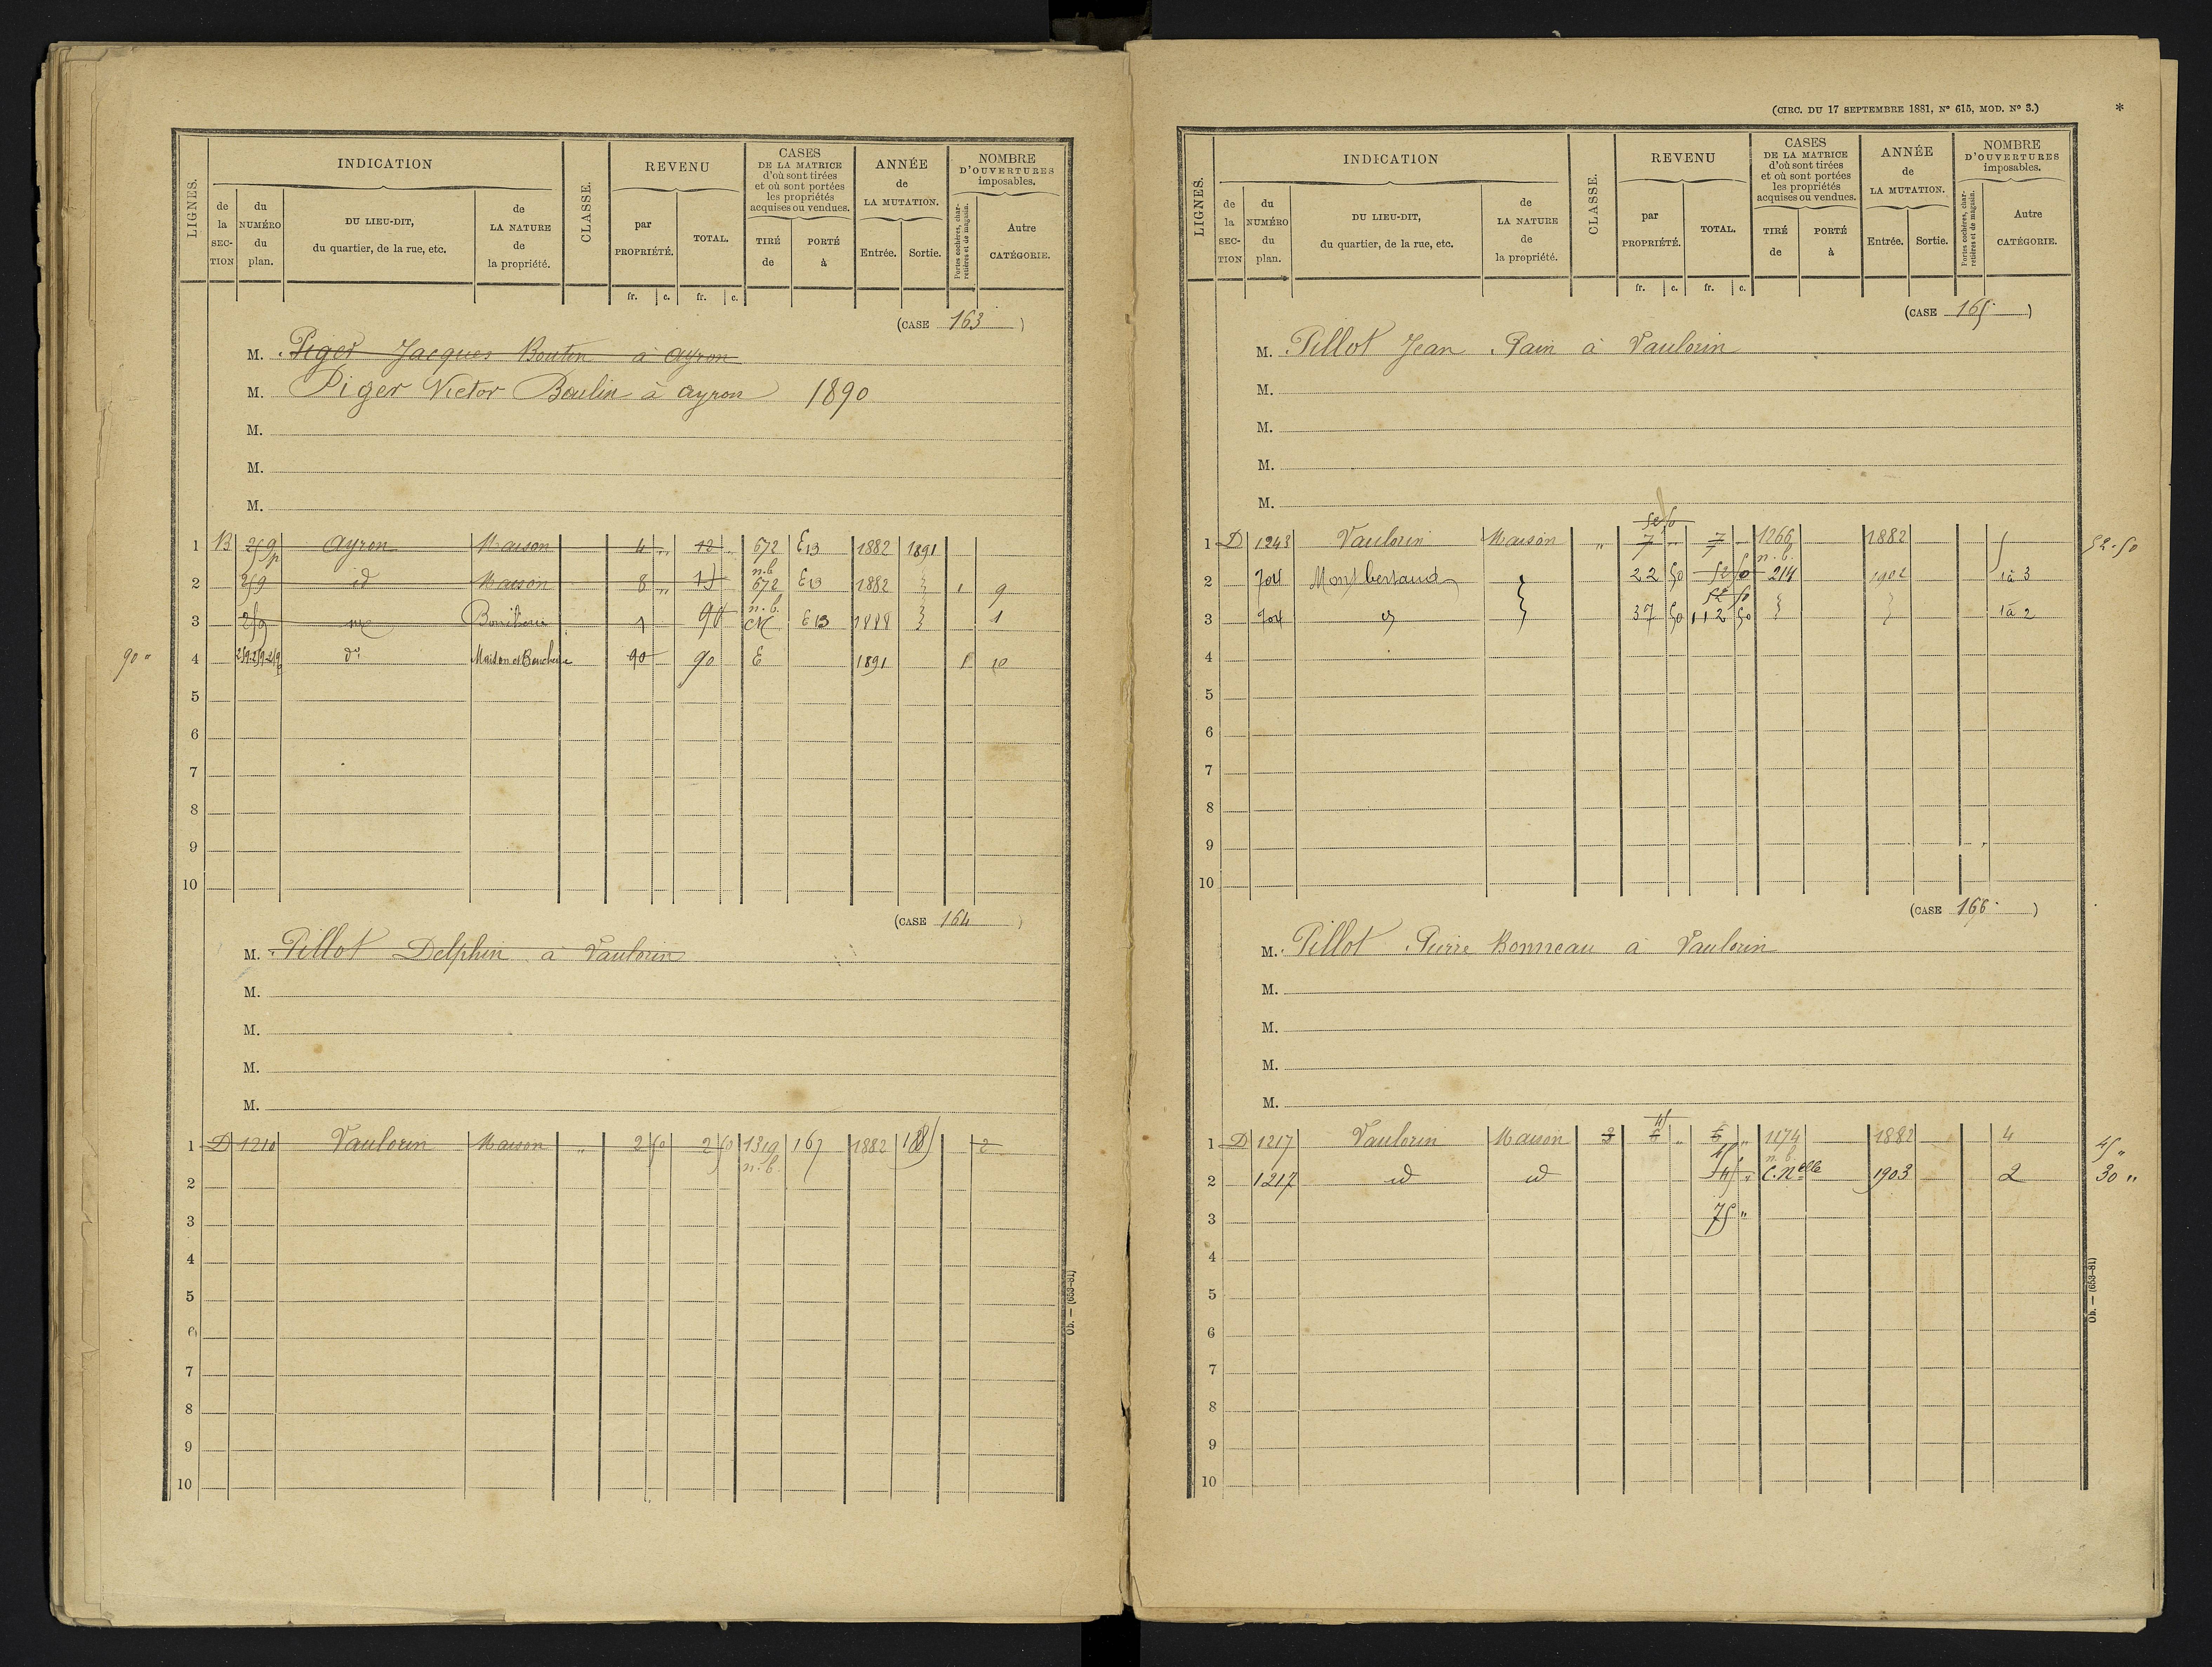 LIGNES.
INDICATION
CLASSE.
REVENU
CASES
DE LA MATRICE
d'où sont tirées
et où sont portées
les propriétés
acquises ou vendues.
ANNÉE
de
LA MUTATION.
NOMBRE
D'OUVERTURES
imposables.
de
la
SEC-
TION
du
NUMÉRO
du
plan.
DU LIEU-DIT,
du quartier, de la rue, etc.
de
LA NATURE
de
la propriété.
par
PROPRIÉTÉ.
TOTAL.
TIRÉ
de
PORTÉ
à
Entrée.
Sortie.
Portes cochères, char-
retières et de magasin.
Autre
CATÉGORIE.
fr. c. fr. c.
(CASE 163 )
M. Piger Jacques Boutin à ayron
M. Piger Victor Boulin à ayron 1890
M.
M.
M.
1 B 259p Ayron Maison 4 „ 12 „ 672 E13 1882 1891
n.b.
2 259 id Maison 8 „ 672 E13 1882 } 1 9
n.b.
3 259 Boucherie 1 90 CN E13 1888 } 1
90 „ 4 259.259.259p do Maison et Boucherie 90 90 E 1891 1 10
5
6
7
8
9
10
(CASE 164 )
M. Pillot Delphin à Vaulorin
M.
M.
M.
M.
1 D 1210 Vaulorin Maison „ 2 50 2 50 1319 167 1882 1885 2
n.b.
2
3
4
5
6
7
8
9
10
Ob. — (653-81)
(CIRC. DU 17 SEPTEMBRE 1881, N° 615, MOD. N° 3.) *
LIGNES.
INDICATION
CLASSE.
REVENU
CASES
DE LA MATRICE
d'où sont tirées
et où sont portées
les propriétés
acquises ou vendues.
ANNÉE
de
LA MUTATION.
NOMBRE
D'OUVERTURES
imposables.
de
la
SEC-
TION
du
NUMÉRO
du
plan.
DU LIEU-DIT,
du quartier, de la rue, etc.
de
LA NATURE
de
la propriété.
par
PROPRIÉTÉ.
TOTAL.
TIRÉ
de
PORTÉ
à
Entrée.
Sortie.
Portes cochères, char-
retières et de magasin.
Autre
CATÉGORIE.
fr. c. fr. c.
(CASE 165 )
M. Pillot Jean Pain à Vaulorin
M.
M.
M.
M.
1 D 1243 Vaulorin Maison „ 7 „ 7 „ 1266 1882 5 52.50
n.b.
2 704 Montbertaud } 22 50 52 50 214 1902 1 à 3
52 50
3 704 } 37 50 112 50 } } 1 à 2
4
5
6
7
8
9
10
(CASE 166 )
M. Pillot Pierre Bonneau à Vaulorin
M.
M.
M.
M.
45
1 D 1217 Vaulorin Maison 3 6 „ 6 „ 1174 1882 4 45 „
n.b.
2 1217 id id 45 „ C.Nelle 1903 2 30 „
3 75 „
4
5
6
7
8
9
10
Ob. — (653-81)